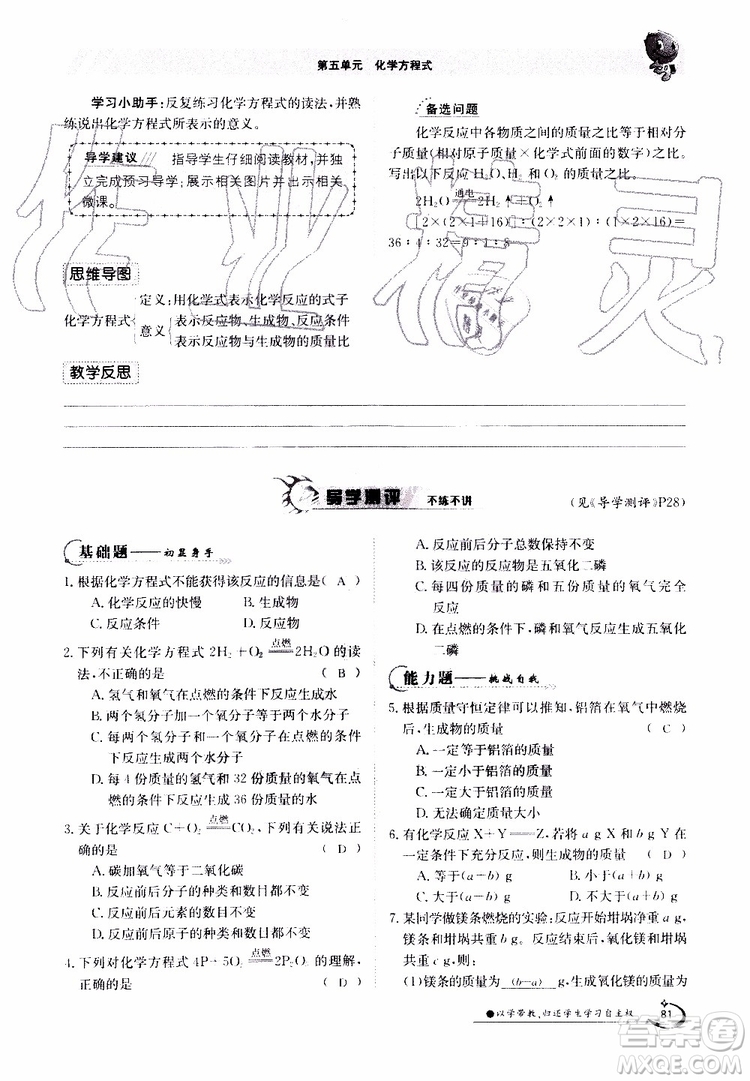 第五单元 化学方程式
学习小助手:反复练习化学方程式的读法,并熟
练说出化学方程式所表示的意义。
导学建议 指导学生仔细阅读教材,并独
立完成预习导学;展示相关图片并出示相关
微课。
思维导图
化学方程式
定义:用化学式表示化学反应的式子
意义
表示反应物、生成物、反应条件
表示反应物与生成物的质量比
教学反思
备选问题
化学反应中各物质之间的质量之比等于相对分
子质量(相对原子质量×化学式前面的数字)之比。
写出以下反应 H₂O、H₂、O₂ 的质量之比。
2H₂O 通电 2H₂↑+O₂↑
[2×(2×1+16)]:(2×2×1):(2×16)=
36:4:32=9:1:8
导学测评 不练不讲
(见《导学测评》P28)
基础题——初显身手
1. 根据化学方程式不能获得该反应的信息是( A )
A. 化学反应的快慢 B. 生成物
C. 反应条件 D. 反应物
2. 下列有关化学方程式 2H₂+O₂ 点燃 2H₂O 的读
法,不正确的是 ( B )
A. 氢气和氧气在点燃的条件下反应生成水
B. 两个氢分子加一个氧分子等于两个水分子
C. 每两个氢分子和一个氧分子在点燃的条件
下反应生成两个水分子
D. 每 4 份质量的氢气和 32 份质量的氧气在点
燃的条件下,生成 36 份质量的水
3. 关于化学反应 C+O₂ 点燃 CO₂,下列有关说法正
确的是 ( D )
A. 碳加氧气等于二氧化碳
B. 反应前后分子的种类和数目都不变
C. 反应前后元素的数目不变
D. 反应前后原子的种类和数目都不变
4. 下列对化学方程式 4P+5O₂ 点燃 2P₂O₅ 的理解,
正确的是 ( D )
A. 反应前后分子总数保持不变
B. 该反应的生成物是五氧化二磷
C. 每四份质量的磷和五份质量的氧气完全
反应
D. 在点燃的条件下,磷和氧气反应生成五氧化
二磷
能力题——挑战自我
5. 根据质量守恒定律可以推知,铝箔在氧气中燃烧
后,生成物的质量 ( C )
A. 一定等于铝箔的质量
B. 一定小于铝箔的质量
C. 一定大于铝箔的质量
D. 无法确定质量大小
6. 有化学反应 X+Y══Z,若将 a g X 与 b g Y 在一定
条件下充分反应,则生成物的质量 ( C )
A. 等于(a+b) g B. 一定小于(a+b) g
C. 等于(a-b) g D. 不大于(a+b) g
7. 某同学做镁条燃烧的实验:反应开始坩埚净重 a g,
镁条和坩埚共重 b g,充分反应后,氧化镁和坩埚
共重 c g,则:
(1)镁条的质量为 (b-a) g,生成氧化镁的质量为
●以学带教,归还学生学习自主权
81
作业精灵
答案圈